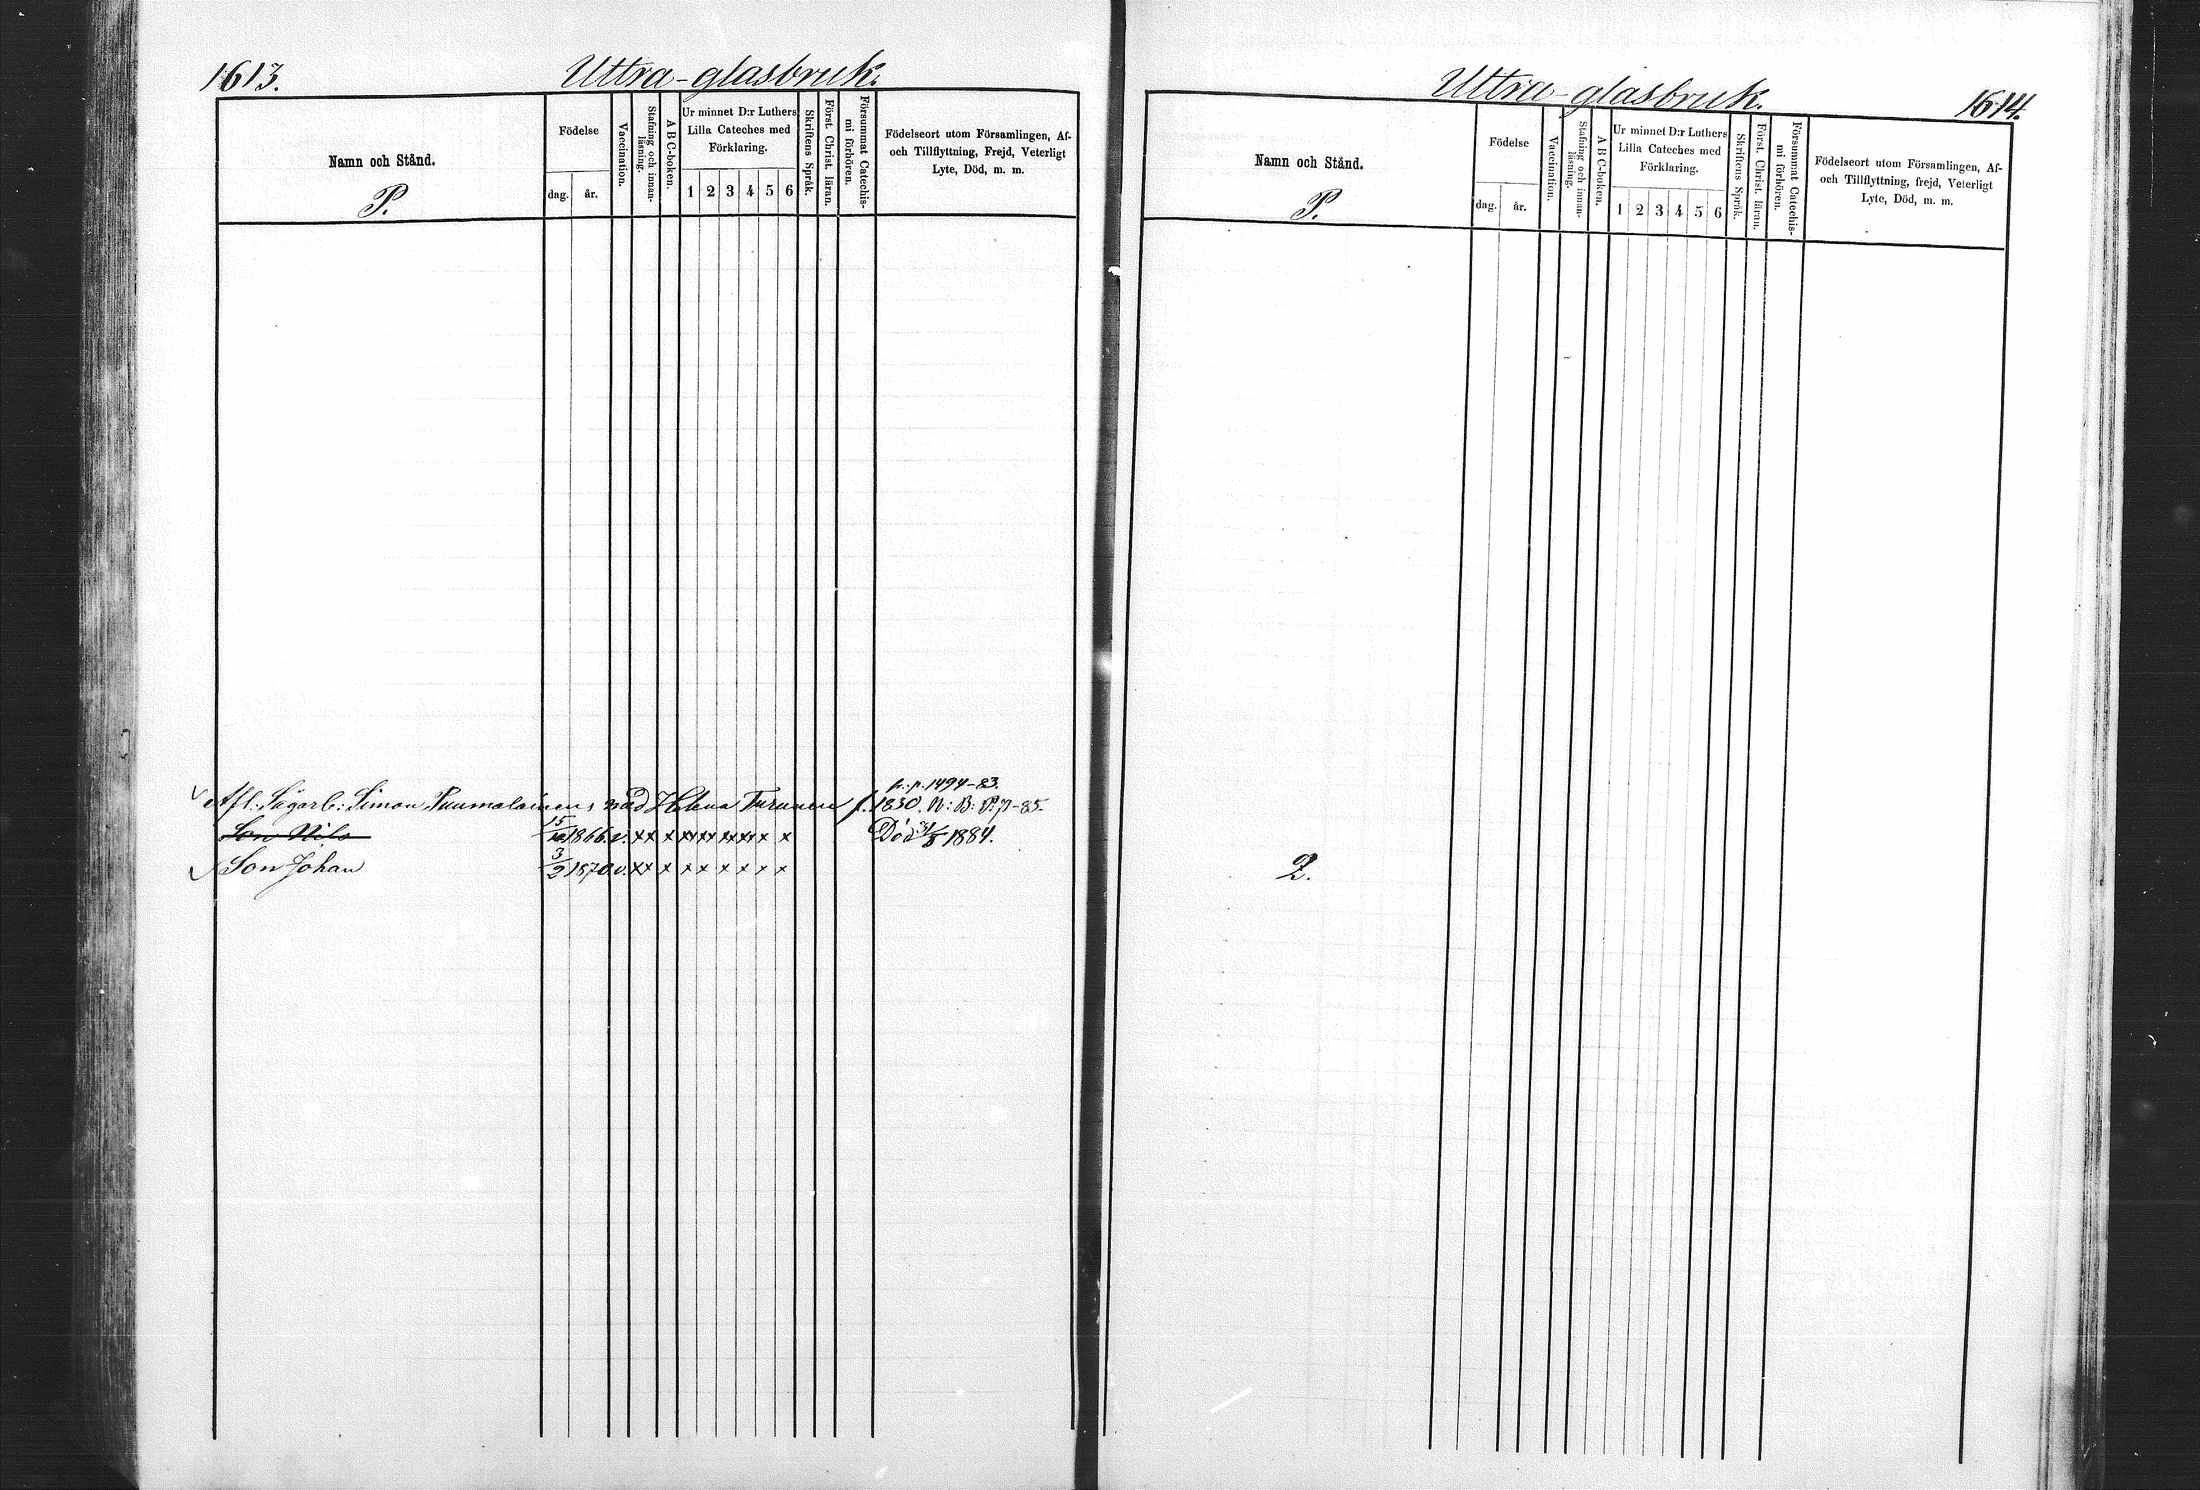 1613.
Uttra-glasbruk.
Namn och Stånd.
P.
Födelse
dag.
år.
Vaccination.
Stafning och innan-
läsning.
A B C-boken.
Ur minnet D:r Luthers
Lilla Cateches med
Förklaring.
1 2 3 4 5 6
Skriftens Språk.
Först. Christ. läran.
Försummat Catechis-
mi förhören.
Födelseort utom Församlingen, Af-
och Tillflyttning, Frejd, Veterligt
Lyte, Död, m. m.
p. 1494-83.
Afl: Sågarb: Simon Puumalainens med Helena Turunen f. 1830. N: B: P: p-85.
Son Nils 15/10 1866. v. xx x xx xx xx xx x x Död 31/8 1884.
Son Johan 3/2 1870 v. xx x x x x x x x
Uttra-glasbruk.
1614.
Namn och Stånd.
P.
Födelse
dag.
år.
Vaccination.
Stafning och innan-
läsning.
A B C-boken.
Ur minnet D:r Luthers
Lilla Cateches med
Förklaring.
1 2 3 4 5 6
Skriftens Språk.
Först. Christ. läran.
Försummat Catechis-
mi förhören.
Födelseort utom Församlingen, Af-
och Tillflyttning, frejd, Veterligt
Lyte, Död, m. m.
2.